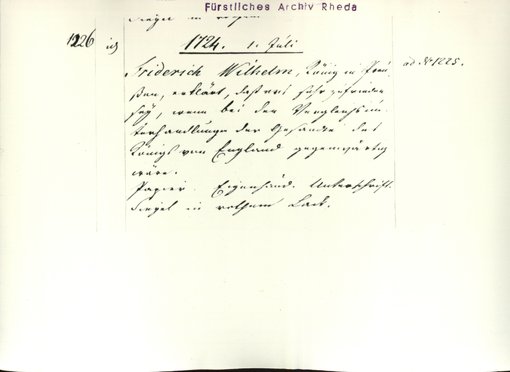 Fürstliches Archiv Rheda
Siegel in rothem
1226 1724. 1. Juli ad № 1225.
Friderich Wilhelm, König in Preu-
ßen, erklärt, daß er es sehr zufrieden
sey, wenn bei den Vergleichsun-
terhandlungen der Gesandte des
Königs von England gegenwärtig
wäre.
Papier. Eigenhänd. Unterschrift.
Siegel in rothem Lack.